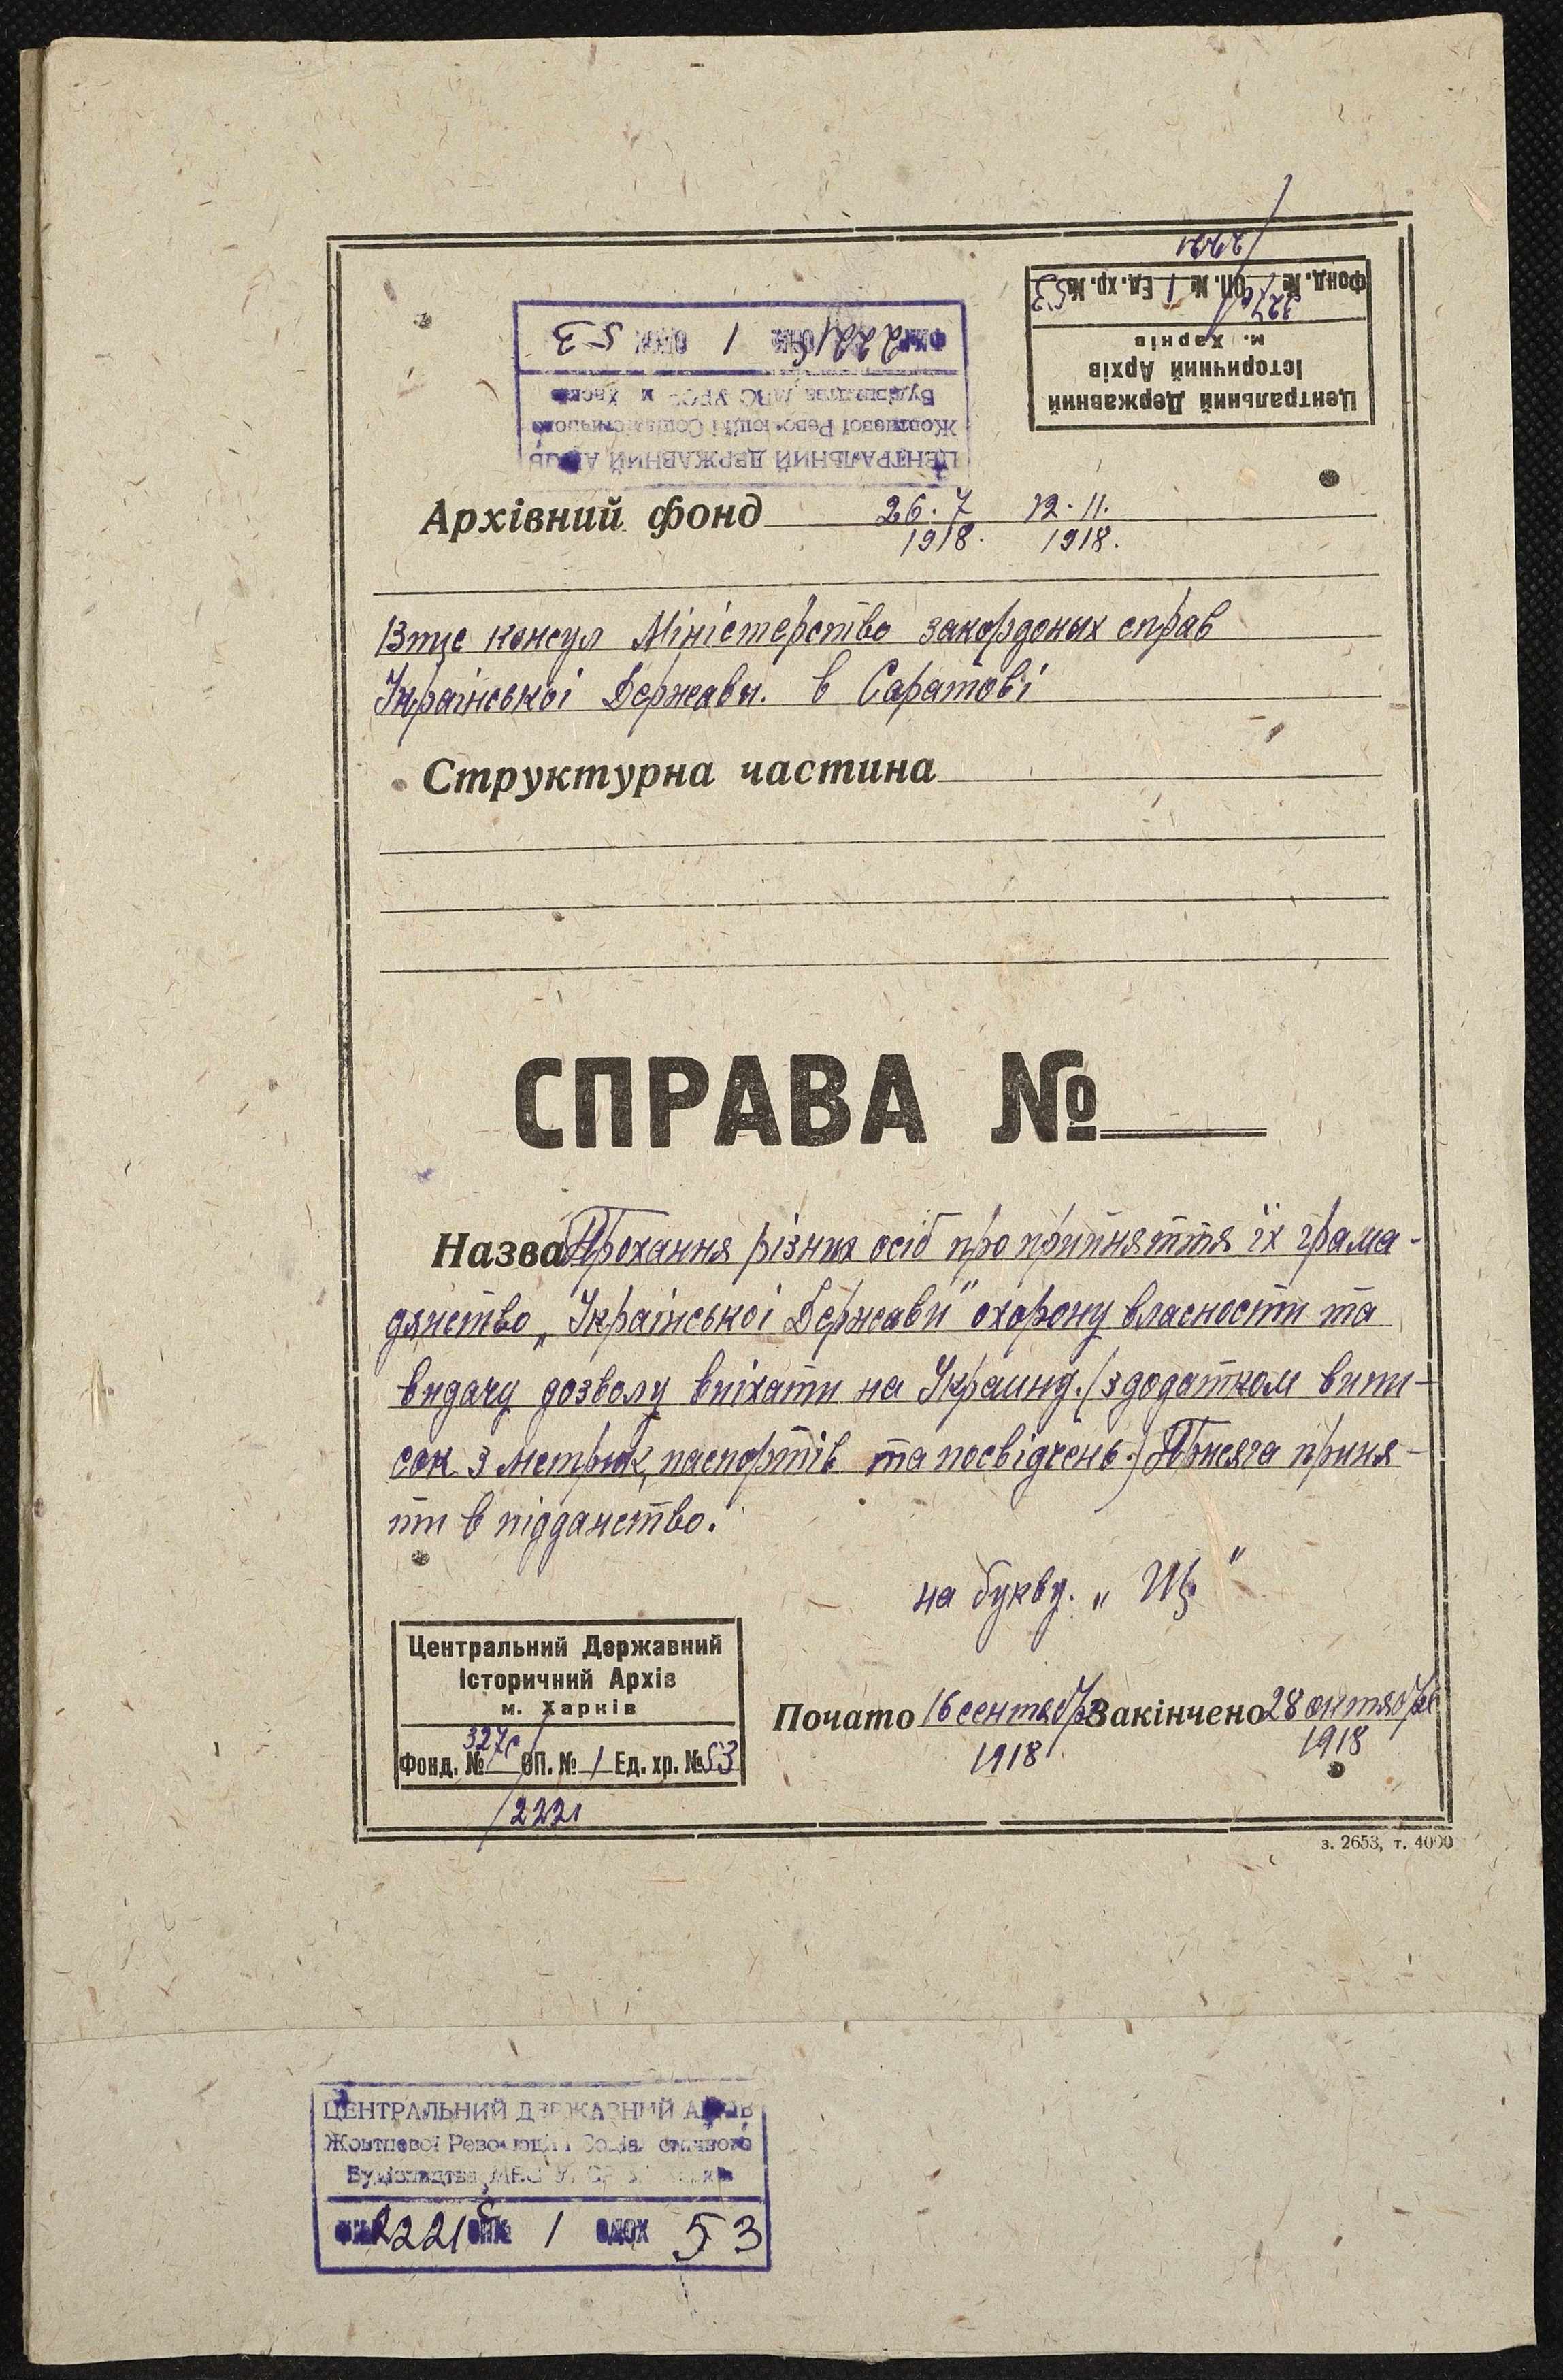 2221
Фонд. № 327с ОП. № 1 Ед. хр. № 53
м. Харків
Історичний Архів
Центральний Державний
2221с 1 53
Будівництва МВС УРСР м. Харків
Жовтневої Революції і Соціалістичного
ЦЕНТРАЛЬНИЙ ДЕРЖАВНИЙ АРХІВ
Архівний фонд 26.7 12.11.
1918. 1918.
Вице консул Міністерство закордоных справ
Української Держави. в Саратові
Структурна частина
СПРАВА №
Назва Прохання різних осіб про прийняття їх грама-
дянство „Української Держави" охорону власности та
видачу дозволу виїхати на Украину. (з додатком випи-
сок з метрик, паспортів та посвідчень.) Присяга приня-
ти в підданство.
на букву. „Щ"
Центральний Державний
Історичний Архів
м. Харків
Фонд. № 327с ОП. № 1 Ед. хр. № 53
2221
Почато 16 сентября Закінчено 28 октября
1918 1918
з. 2653, т. 4000
ЦЕНТРАЛЬНИЙ ДЕРЖАВНИЙ АРХІВ
Жовтневої Революції і Соціалістичного
Будівництва МВС УРСР м. Харків
2221с ОП№ 1 ОДОХ 53